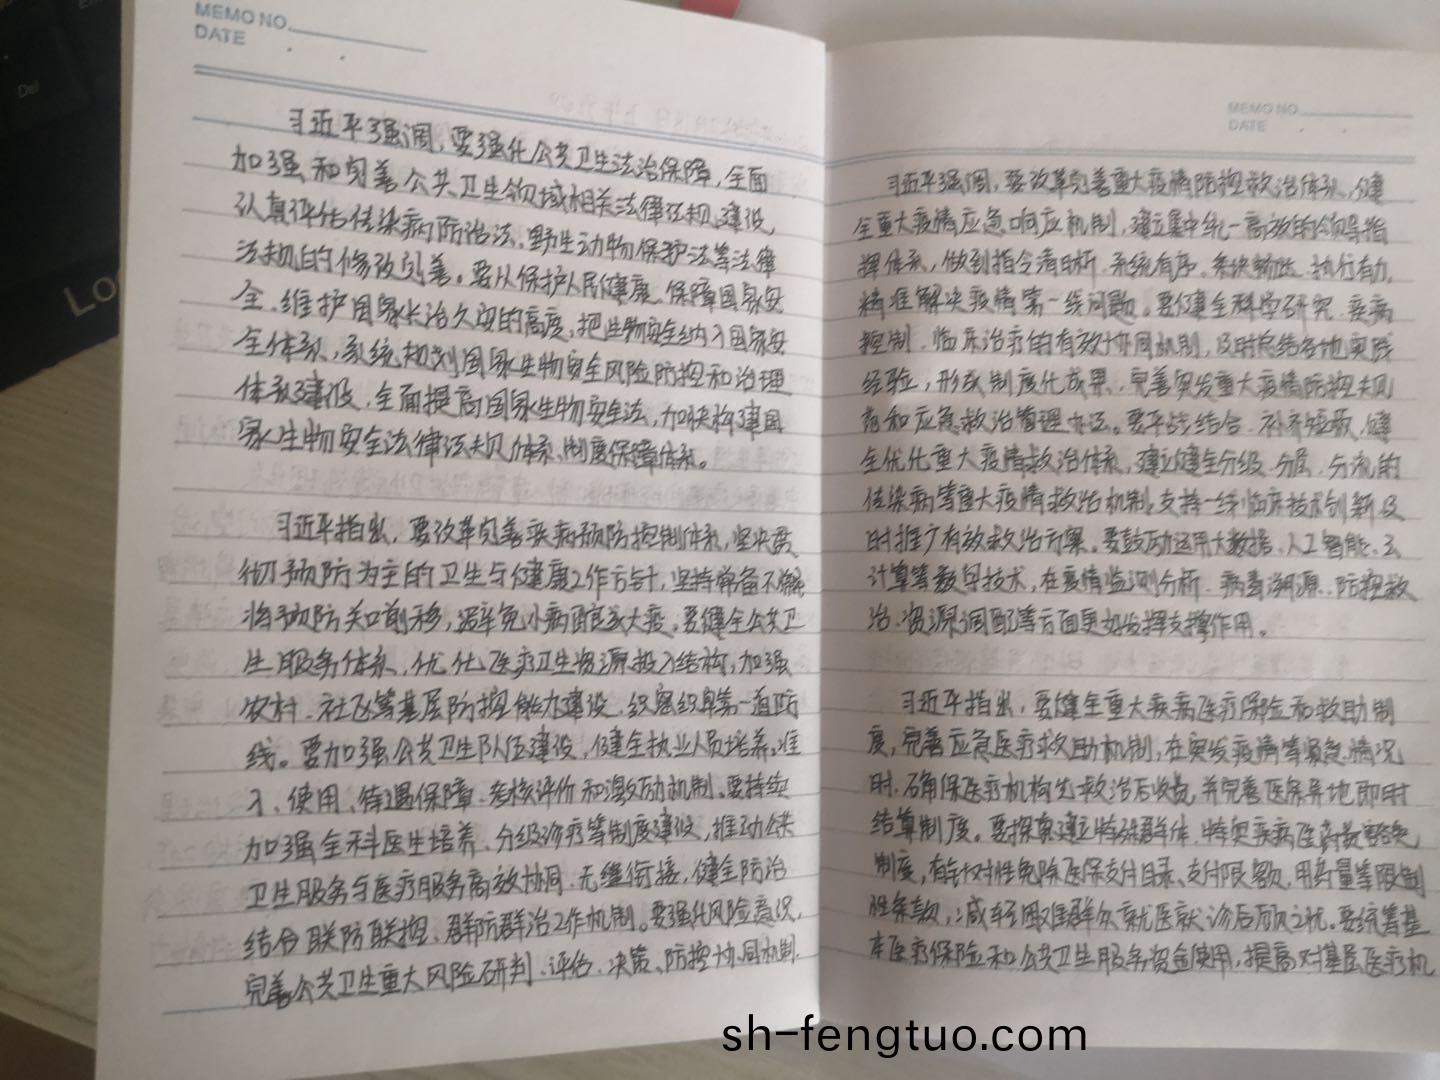 MEMO NO.
DATE
习近平强调，要强化公共卫生法治保障，全面
加强和完善公共卫生领域相关法律法规建设，
认真评估传染病防治法、野生动物保护法等法律
法规的修改完善。要从保护人民健康、保障国家安
全、维护国家长治久安的高度，把生物安全纳入国家安
全体系，系统规划国家生物安全风险防控和治理
体系建设，全面提高国家生物安全法，加快构建国
家生物安全法律法规体系、制度保障体系。
习近平指出，要改革完善疾病预防控制体系，坚决贯
彻预防为主的卫生与健康工作方针，坚持常备不懈
将预防关口前移，避免小病酿成大疫。要健全公共卫
生服务体系，优化医疗卫生资源投入结构，加强
农村、社区等基层防控能力建设，织密织牢第一道防
线。要加强公共卫生队伍建设，健全执业人员培养、准
入、使用、待遇保障、考核评价和激励机制。要持续
加强全科医生培养、分级诊疗等制度建设，推动公共
卫生服务与医疗服务高效协同、无缝衔接，健全防治
结合、联防联控、群防群治工作机制。要强化风险意识，
完善公共卫生重大风险研判、评估、决策、防控协同机制.
MEMO NO.
DATE
习近平强调，要改革完善重大疫情防控救治体系，健
全重大疫情应急响应机制，建立集中统一高效的领导指
挥体系，做到指令清晰、系统有序、条块畅达、执行有力，
精准解决疫情第一线问题。要健全科学研究、疾病
控制、临床治疗的有效协同机制，及时总结各地实践
经验，形成制度化成果，完善突发重大疫情防控规
范和应急救治管理办法。要平战结合、补齐短板，健
全优化重大疫情救治体系，建立健全分级、分层、分流的
传染病等重大疫情救治机制，支持一线临床技术创新，及
时推广有效救治方案。要鼓励运用大数据、人工智能、云
计算等数字技术，在疫情监测分析、病毒溯源、防控救
治、资源调配等方面更好发挥支撑作用。
习近平指出，要健全重大疾病医疗保险和救助制
度，完善应急医疗救助机制，在突发疫情等紧急情况
时，确保医疗机构先救治后收费，并完善医保异地即时
结算制度。要探索建立特殊群体、特定疾病医药费豁免
制度，有针对性免除医保支付目录、支付限额、用药量等限制
性条款，减轻困难群众就医就诊后顾之忧。要统筹基
本医疗保险和公共卫生服务资金使用，提高对基层医疗机
sh-fengtuo.com